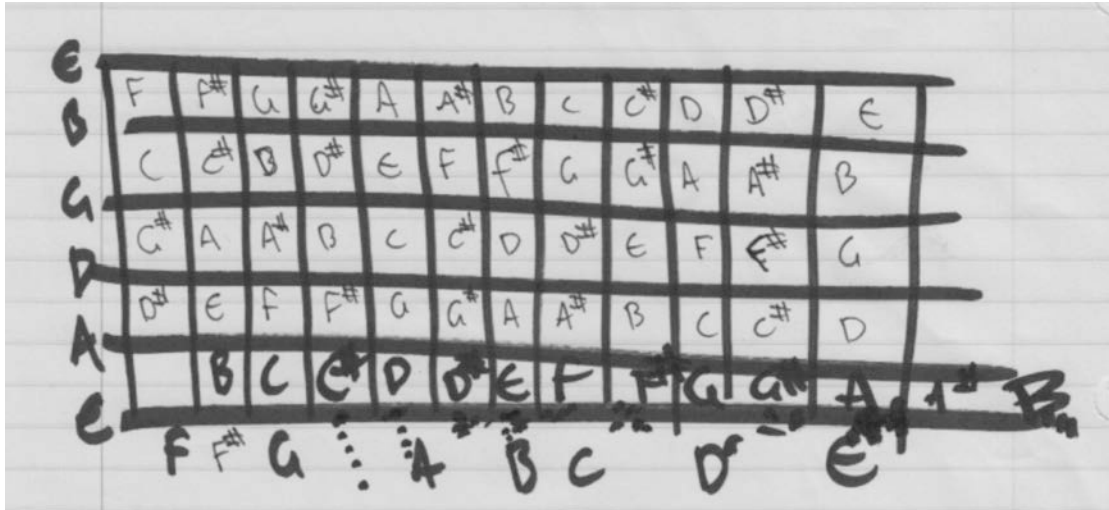 E
F F# G G# A A# B C C# D D# E
B
C C# B D# E F F# G G# A A# B
G
G# A A# B C C# D D# E F F# G
D
D# E F F# G G# A A# B C C# D
A
B C C# D D# E F F# G G# A A#
E
F F# G A B C D E